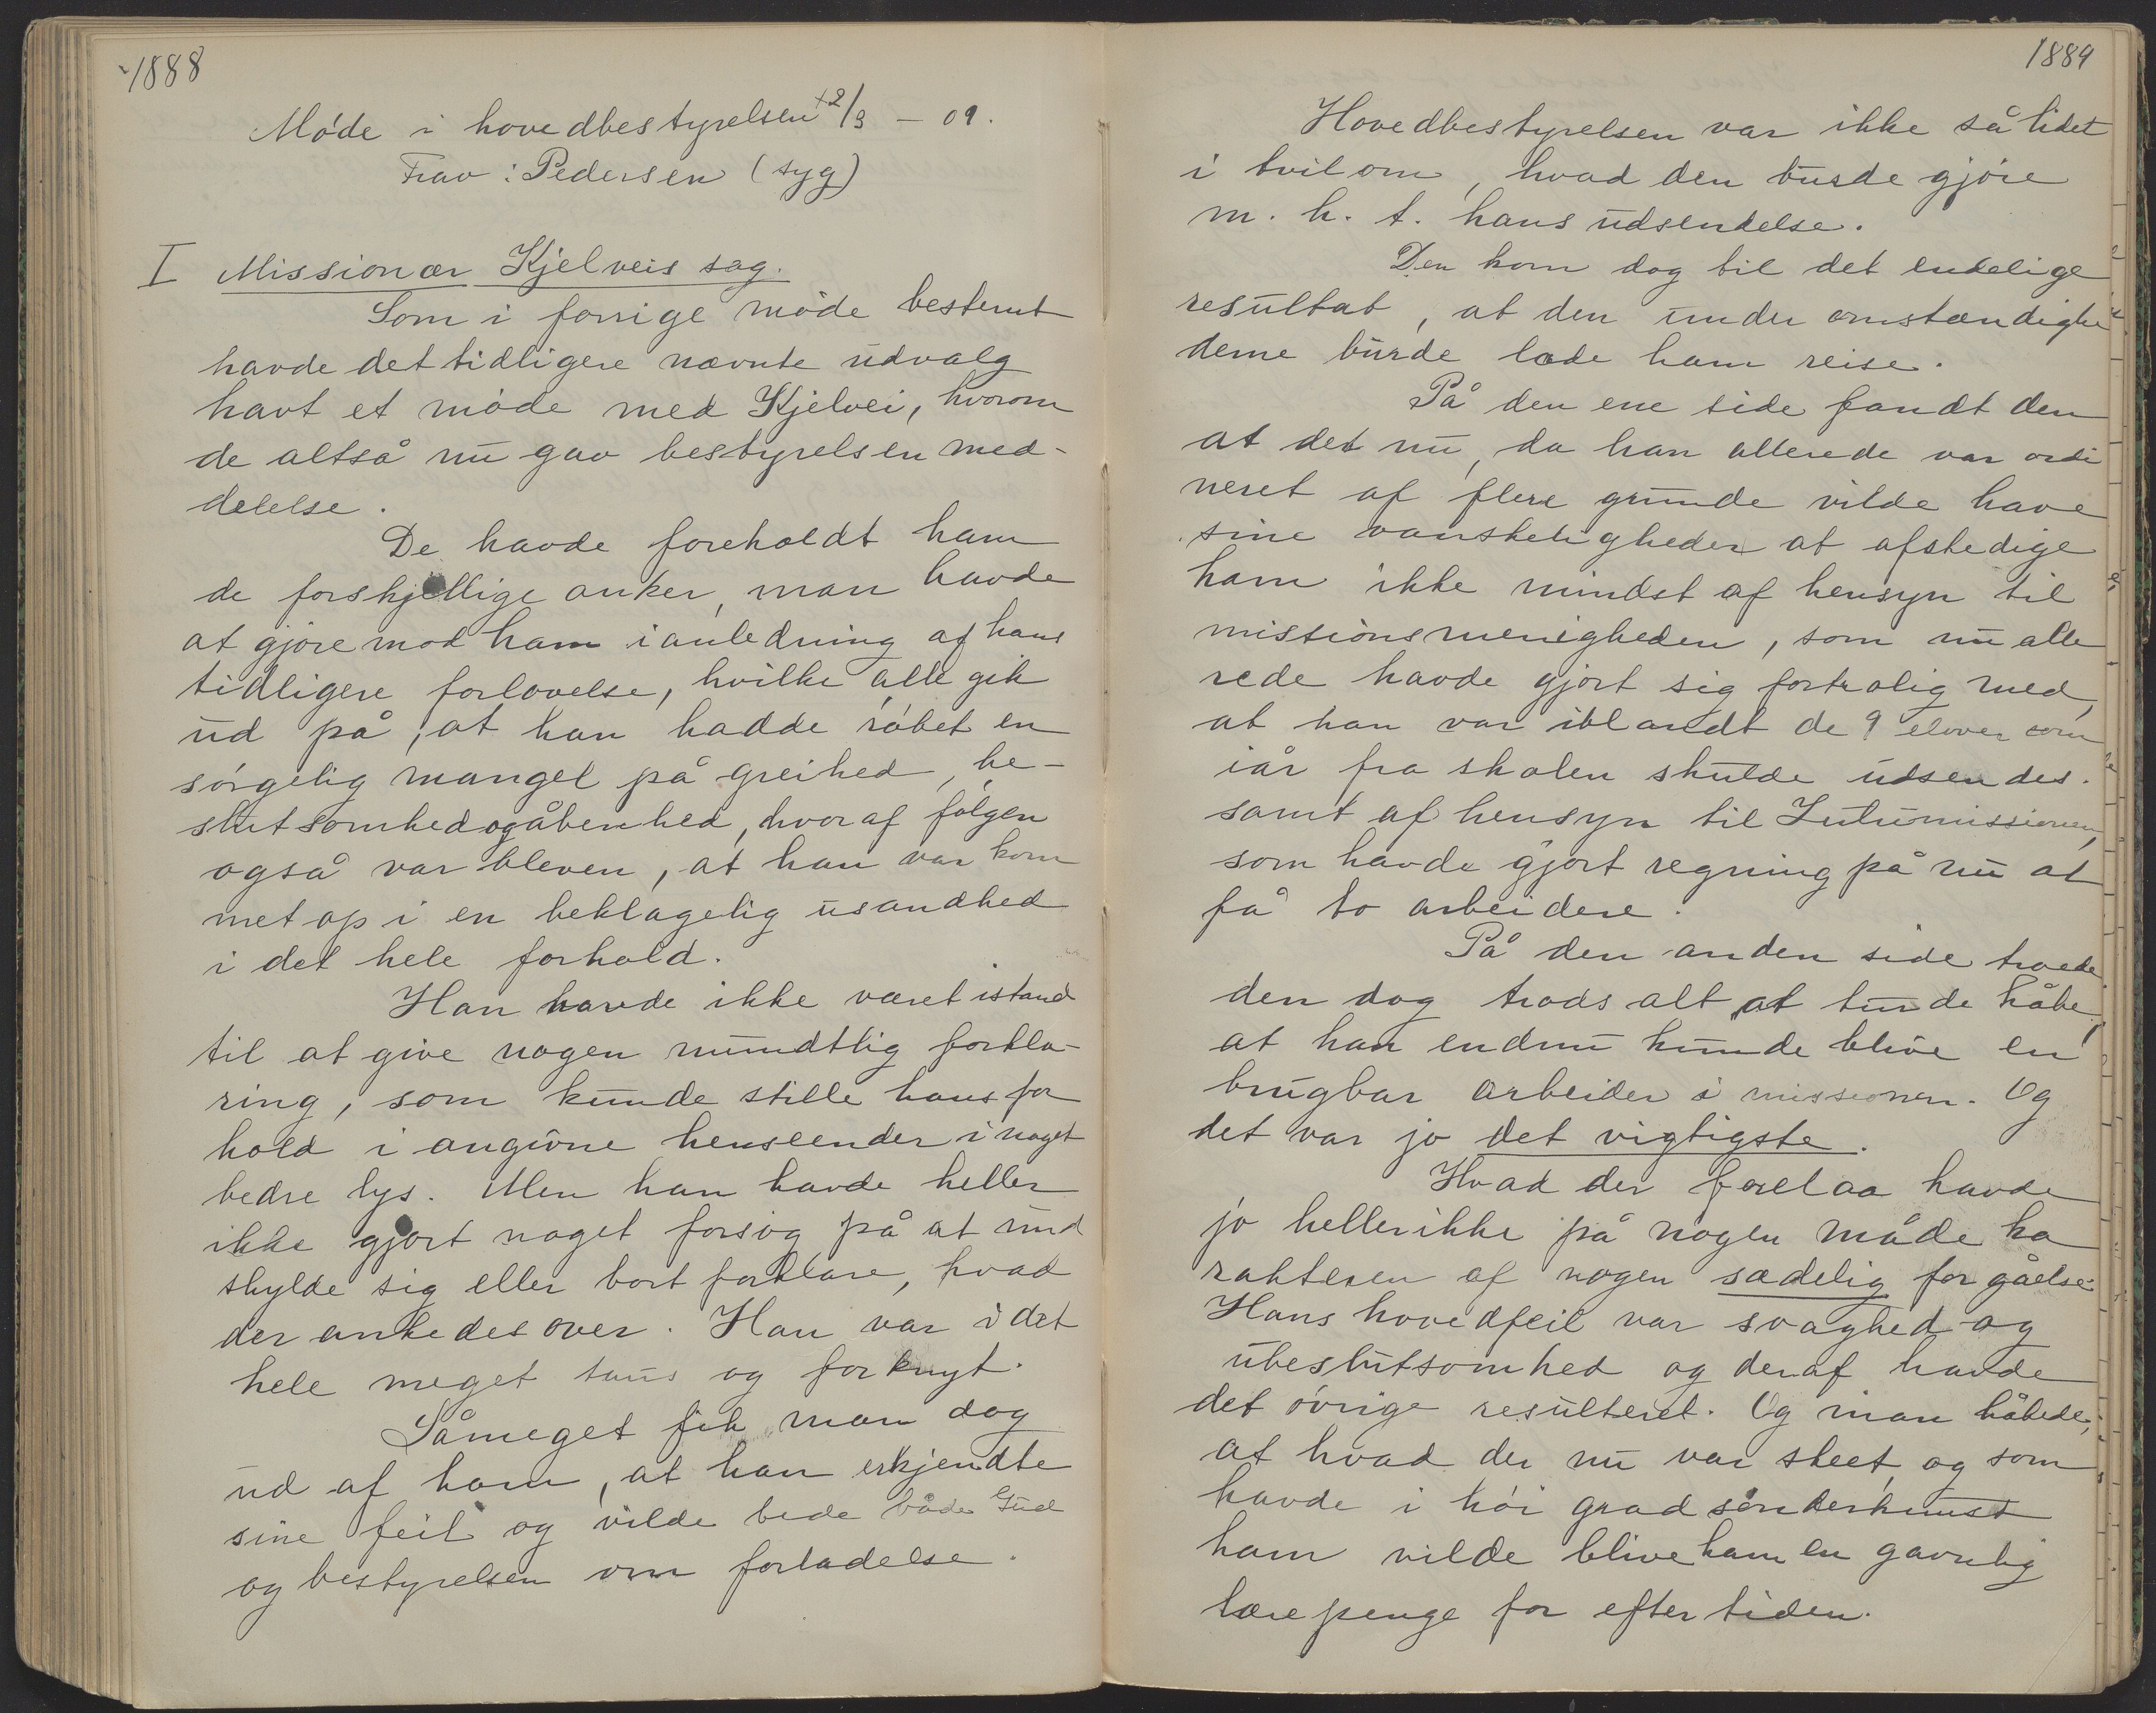 1888
Møde i hovedbestyrelsen 12/3 - 09.
Frav: Pedersen (syg)
I Missionær Kjelveis sag.
Som i forrige møde bestemt
havde det tidligere nævnte udvalg
havt et møde med Kjelvei, hvorom
de altså nu gav bestyrelsen med-
delelse.
De havde foreholdt ham
de forskjellige anker, man havde
at gjøre mod ham i anledning af hans
tidligere forlovelse, hvilke alle gik
ud på, at han hadde røbet en
sørgelig mangel på greihed, be-
slutsomhed og åbenhed, hvoraf følgen
også var bleven, at han var kom
met op i en beklagelig usandhed
i det hele forhold.
Han havde ikke været istand
til at give nogen mundtlig forkla-
ring, som kunde stille hans for
hold i angivne henseender i noget
bedre lys. Men han havde heller
ikke gjort noget forsøg på at und
skylde sig eller bort forklare, hvad
der ankedes over. Han var i det
hele meget taus og forknyt.
Såmeget fik man dog
ud af ham, at han erkjendte
sine feil og vilde bede både Gud
og bestyrelsen om forladelse.
1889
Hovedbestyrelsen var ikke så lidet
i tvil om, hvad den burde gjøre
m. h. t. hans udsendelse.
Den kom dog til det endelige
resultat, at den under omstændighe
derne burde lade ham reise.
På den ene side fandt den
at det nu, da han allerede var ordi
neret af flere grunde vilde have
sine vanskeligheder at afskedige
ham ikke mindst af hensyn til
missionsmenigheden, som nu alle
rede havde gjort sig fortrolig med,
at han var iblandt de 9 elever som
iår fra skolen skulde udsendes.
samt af hensyn til Zulumissionen,
som havde gjort regning på nu at
få to arbeidere.
På den anden side troede
den dog trods alt at turde håbe,
at han endnu kunde blive en
brugbar arbeider i missionen. Og
det var jo det vigtigste.
Hvad der forelaa havde
jo heller ikke på nogen måde ka
rakteren af nogen sædelig forgåelse.
Hans hovedfeil var svaghed og
ubeslutsomhed og deraf havde
det øvrige resulteret. Og man håbede,
at hvad der nu var skeet, og som
havde i høi grad sønderknust
ham vilde blive ham en gavnlig
lærepenge for eftertiden.